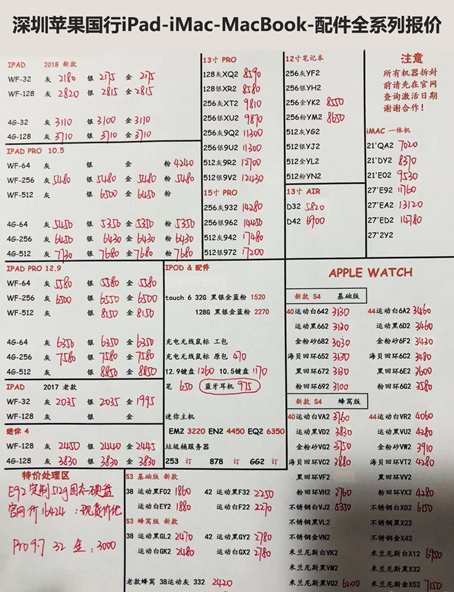 深圳苹果国行iPad-iMac-MacBook-配件全系列报价
IPAD 2018 新款
WF-32 灰 2180 银 2175 金 2175
WF-128 灰 2820 银 2815 金 2815
4G-32 灰 3110 银 3100 金 3110
4G-128 灰 3710 银 3710 金 3710
IPAD PRO 10.5
WF-64 灰 银 金 粉 4240
WF-256 灰 5480 银 5480 金 5480 粉 5480
WF-512 灰 银 6500 金 6450 粉
4G-64 灰 5450 银 5350 金 5350 粉 5350
4G-256 灰 6450 银 6430 金 6430 粉 6430
4G-512 灰 7730 银 7680 金 7680 粉 7680
IPAD PRO 12.9
WF-64 灰 5580 银 5580 金 5580
WF-256 灰 6500 银 6550 金 6500
WF-512 灰 银 8150 金 8150
4G-64 灰 6350 银 6350 金 6350
4G-256 灰 7580 银 7580 金 7580
4G-512 灰 银 8850 金 8850
IPAD 2017 老款
WF-32 灰 2035 银 2035 金 1995
迷你 4
WF-128 灰 2450 银 2440 金 2445
4G-128 灰 3830 银 3830 金 3830
特价处理区
Pro9.7 32 金：3000
13寸 PRO
128灰XQ2 8590
128银XR2 8580
256灰XT2 9810
256银XU2 9870
256灰9Q2 11300
512银9U2 11300
512灰9R2 12700
512银9V2 12430
15寸 PRO
256灰932 14280
256银962 14450
512灰942 17480
512银972 17200
12寸笔记本
256灰YF2
256银YH2
256金YK2 8550
256粉YM2 8650
512灰YG2
512银YJ2
512金YL2
512粉YN2
13寸 AIR
D32 5820
D42 6900
注意
所有机器拆封
前请先在官网
查询激活日期
谢谢合作！
iMAC 一体机
21'QA2 7020
21'DY2 8370
21'E02 9530
27'E92 11760
27'EA2 13120
27'ED2 14780
27'2Y2
IPOD & 配件
touch 6 32G 黑银金蓝粉 1520
128G 黑银金蓝粉 2270
充电无线鼠标 工包
充电无线鼠标 原包 470
12.9键盘 1260 10.5键盘 1170
笔 650 蓝牙耳机 975
迷你主机
EM2 3220 EN2 4450 EQ2 6350
垃圾桶服务器
253 订 878 订 662 订
S3 基础版
38 运动黑F02 1860 42 运动黑F32 2250
运动白EY2 1880 运动白F22 2270
S3 蜂窝版 新款
38 运动黑GL2 2470 42 运动黑GY2 2780
运动白GK2 2480 运动白GX2 2780
老款蜂窝 38运动灰 332 2420
APPLE WATCH
新款 S4 基础版
40运动白642 3130 44运动白6A2 3460
运动黑662 3130 运动黑6D2 3460
金粉砂682 3030 金粉砂6F2 3430
海贝回环652 3130 海贝回环6C2 3480
黑回环672 3130 黑回环6E2 3600
粉回环692 3100 粉回环6G2 3580
新款 S4 蜂窝版
40运动白VA2 3760 44运动白VR2 4060
运动黑VD2 3830 运动黑VU2 4280
金粉砂VG2 3750 金粉砂VW2 3910
海贝回环VC2 3880 海贝回环VT2 4280
黑回环VF2 黑回环VV2
粉回环VH2 粉回环VX2
不锈钢白VJ2 5350 不锈钢白X02 6150
不锈钢黑VL2 不锈钢黑X22
不锈钢金VN2 不锈钢金X42
米兰尼斯白VK2 米兰尼斯白X12 6950
米兰尼斯黑VM2 米兰尼斯黑X32
米兰尼斯金VQ2 6200 米兰尼斯金X52 7150